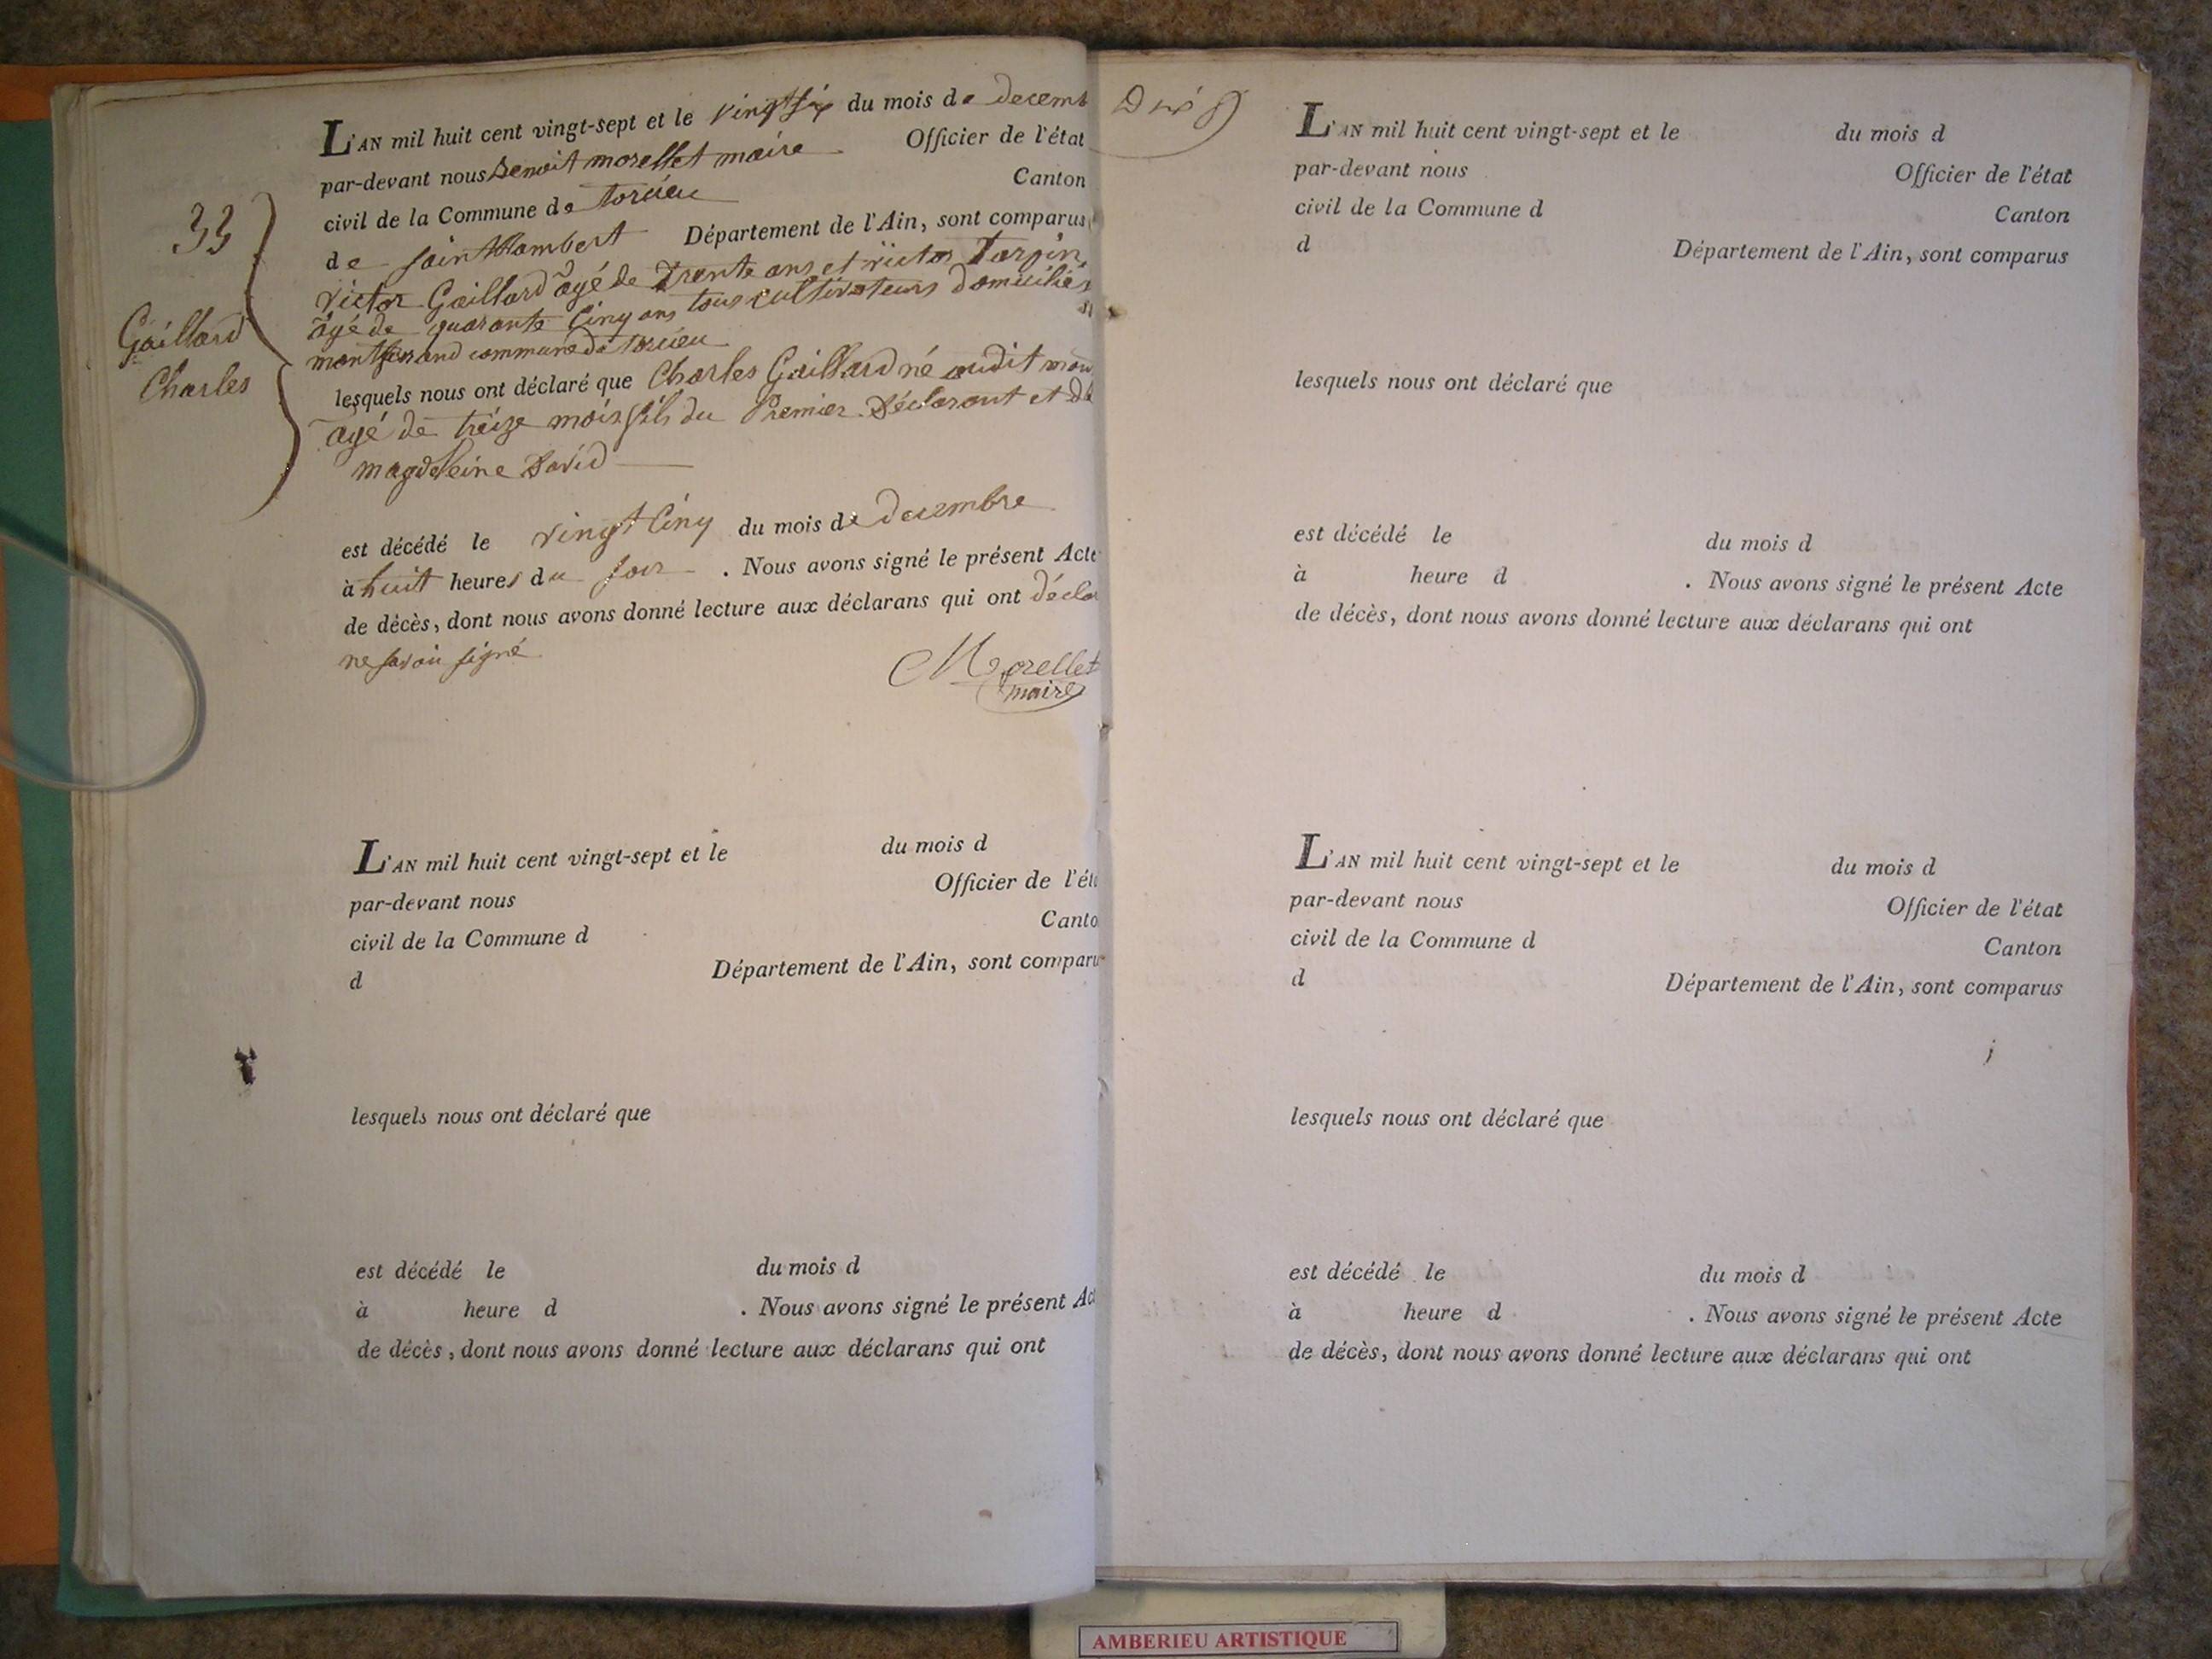 33
Gaillard
Charles
L'AN mil huit cent vingt-sept et le vingt six du mois de decemb
par-devant nous Benoit morellet maire Officier de l'état
civil de la Commune de torcieu Canton
de saint Rambert Département de l'Ain, sont comparus
victor Gaillard âgé de Trente ans et victor Tarpin
âgé de quarante Cinq ans tous cultivateurs domiciliés
montferrand commune de torcieu
lesquels nous ont déclaré que Charles Gaillard né audit mon
âgé de treize mois fils du Premier Déclarant et de
magdeleine David
est décédé le vingt Cinq du mois de decembre
à huit heures du soir . Nous avons signé le présent Acte
de décès, dont nous avons donné lecture aux déclarans qui ont décla
ne savoir signé
Morellet
maire
L'AN mil huit cent vingt-sept et le du mois d
par-devant nous Officier de l'éta
civil de la Commune d Canto
d Département de l'Ain, sont comparu
lesquels nous ont déclaré que
est décédé le du mois d
à heure d . Nous avons signé le présent Act
de décès, dont nous avons donné lecture aux déclarans qui ont
L'AN mil huit cent vingt-sept et le du mois d
par-devant nous Officier de l'état
civil de la Commune d Canton
d Département de l'Ain, sont comparus
lesquels nous ont déclaré que
est décédé le du mois d
à heure d . Nous avons signé le présent Acte
de décès, dont nous avons donné lecture aux déclarans qui ont
L'AN mil huit cent vingt-sept et le du mois d
par-devant nous Officier de l'état
civil de la Commune d Canton
d Département de l'Ain, sont comparus
lesquels nous ont déclaré que
est décédé le du mois d
à heure d . Nous avons signé le présent Acte
de décès, dont nous avons donné lecture aux déclarans qui ont
AMBERIEU ARTISTIQUE